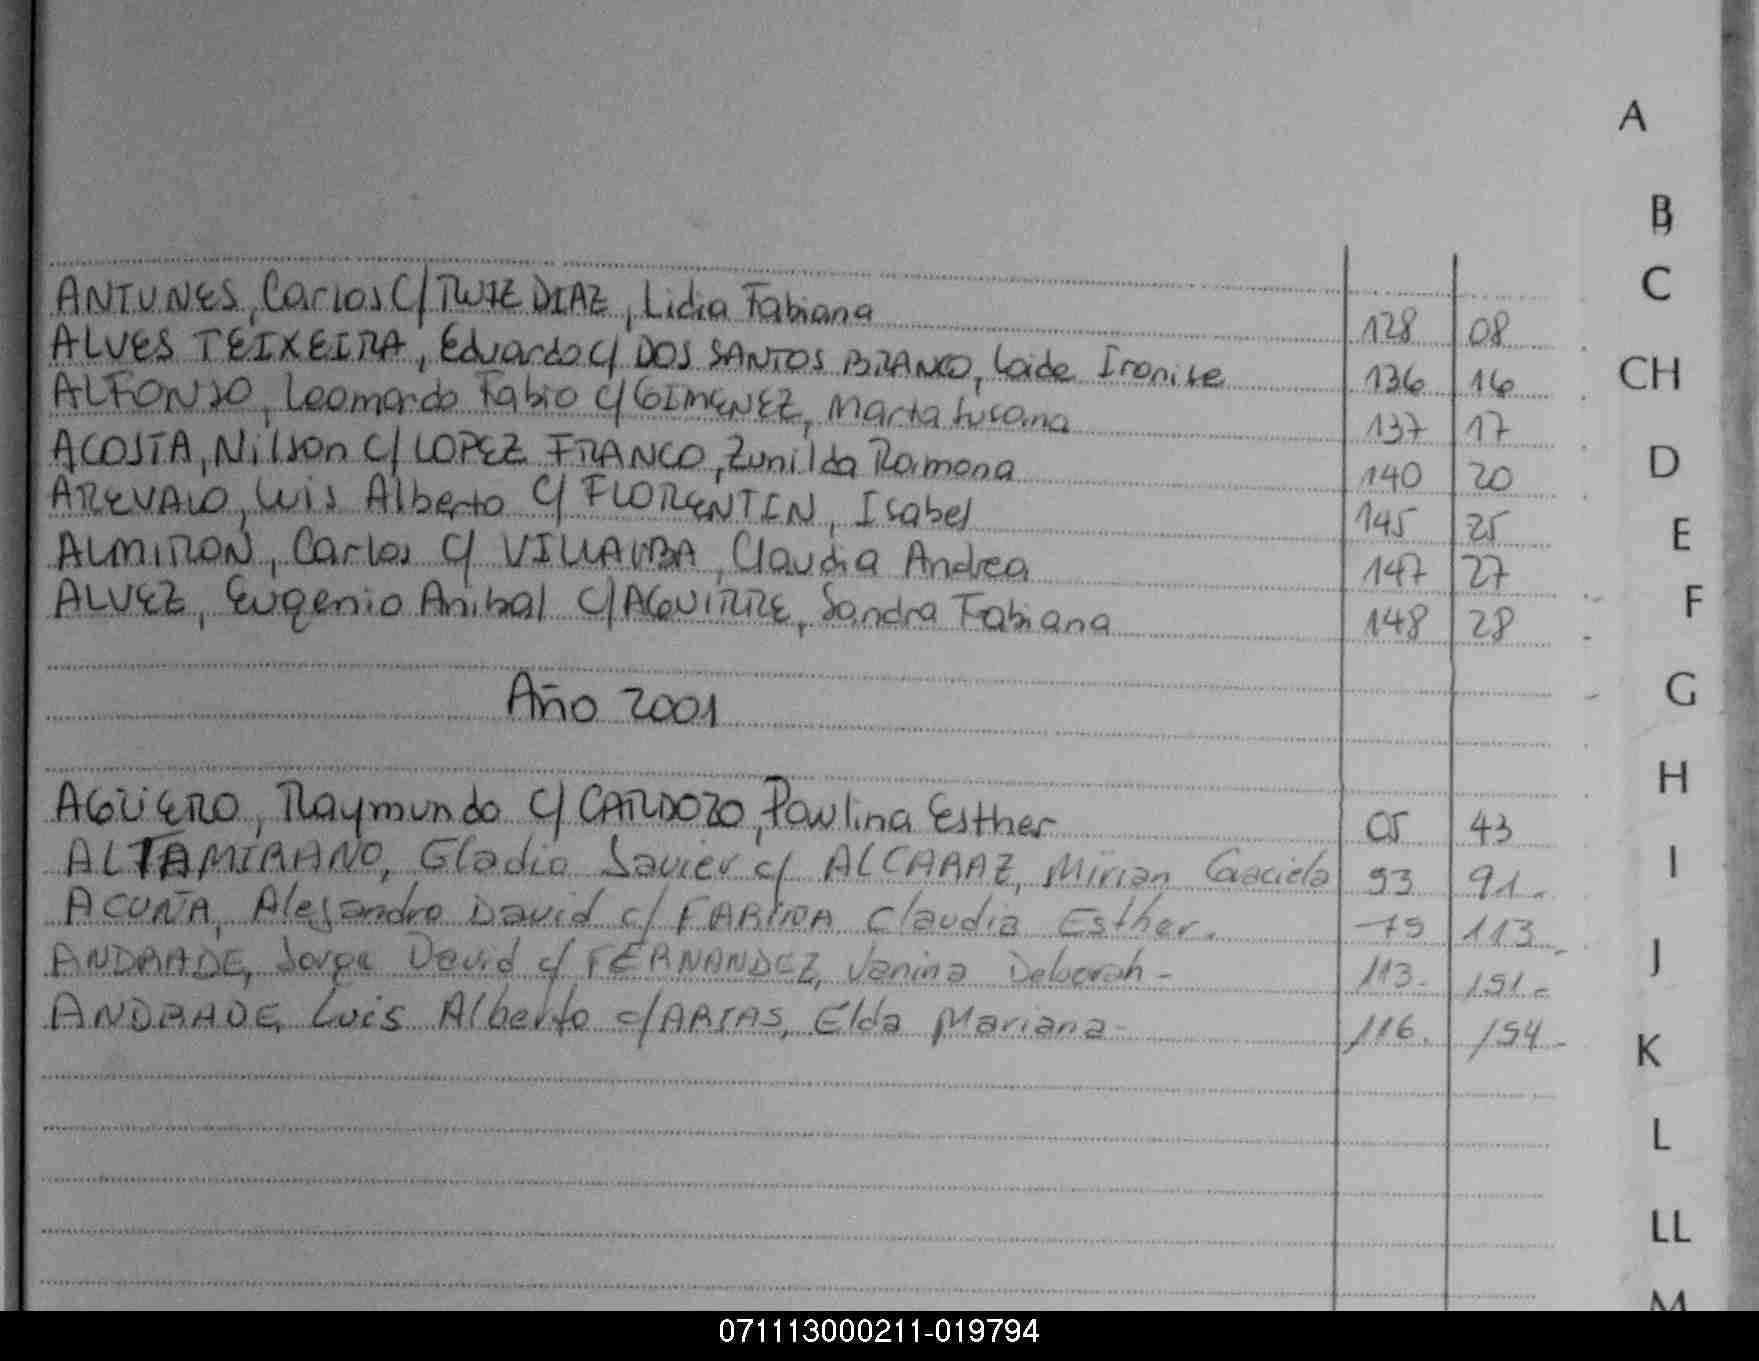 A
B
C
ANTUNES, Carlos C/ RUIZ DIAZ, Lidia Fabiana 128 08
ALVES TEIXEIRA, Eduardo c/ DOS SANTOS BRANCO, Loide Ironite 136 16
CH
ALFONSO, Leomardo Fabio c/ GIMENEZ, Marta Susana 137 17
ACOSTA, Nilson C/ LOPEZ FRANCO, Zunilda Ramona 140 20
D
AREVALO, Luis Alberto C/ FLORENTIN, Isabel 145 25
E
ALMIRON, Carlos C/ VILLALBA, Claudia Andrea 147 27
F
ALVEZ, Eugenio Anibal C/ AGUIRRE, Sandra Fabiana 148 28
G
Año 2001
H
AGÜERO, Raymundo C/ CARDOZO, Paulina Esther 05 43
ALTAMIRANO, Gladio Javier c/ ALCARAZ, Mirian Graciela 53 91.
I
ACUÑA, Alejandro David c/ FARIÑA Claudia Esther. 75 113
J
ANDRADE, Jorge David c/ FERNANDEZ, Vanina Deborah - 113. 151.-
ANDRADE, Luis Alberto c/ ARIAS, Elda Mariana - 116. 154-
K
L
LL
M
071113000211-019794